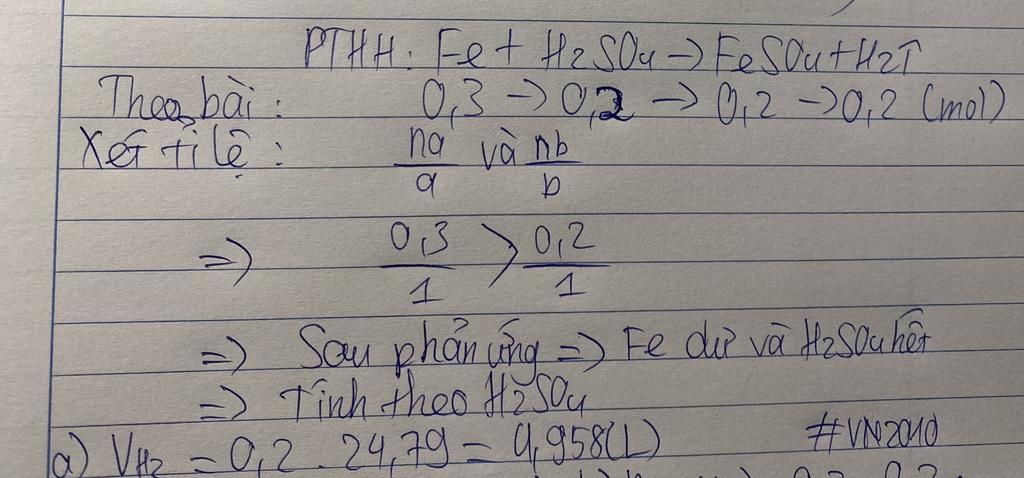 PTHH: Fe + H2SO4 → FeSO4 + H2↑
Theo bài: 0,3 → 0,2 → 0,2 → 0,2 (mol)
Xét tỉ lệ: na/a và nb/b
=> 0,3/1 > 0,2/1
=> Sau phản ứng => Fe dư và H2SO4 hết
=> Tính theo H2SO4
a) VH2 = 0,2 . 24,79 = 4,958(L) #VN2010